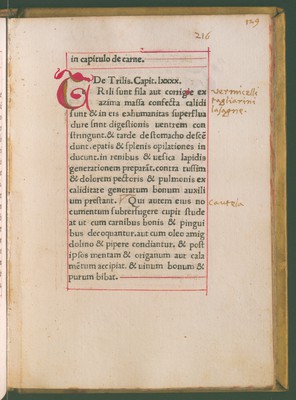 329
216
in capitulo de carne.
De Trilis. Capit. lxxxx.
TRili sunt fila aut corrigie ex
azima massa confecta calidi
sunt & in eis exhumanitas superflua
dure sunt digestionis uentrem con
stringunt. & tarde destomacho descē
dunt. epatis & splenis opilationes in
ducunt. in renibus & uesica lapidis
generationem preparāt. contra tussim
& dolorem pectoris & pulmonis ex
caliditate generatum bonum auxili
um prestant. Qui autem eius no
cumentum subterfugere cupit stude
at ut cum carnibus bonis & pingui
bus decoquantur. aut cum oleo amig
dolino & pipere condiantur. & post
ipsos mentam & origanum aut cala
mētum accipiat. & uinum bonum &
purum bibat.
vermicelli
tagliarini
lasagne.
cautela